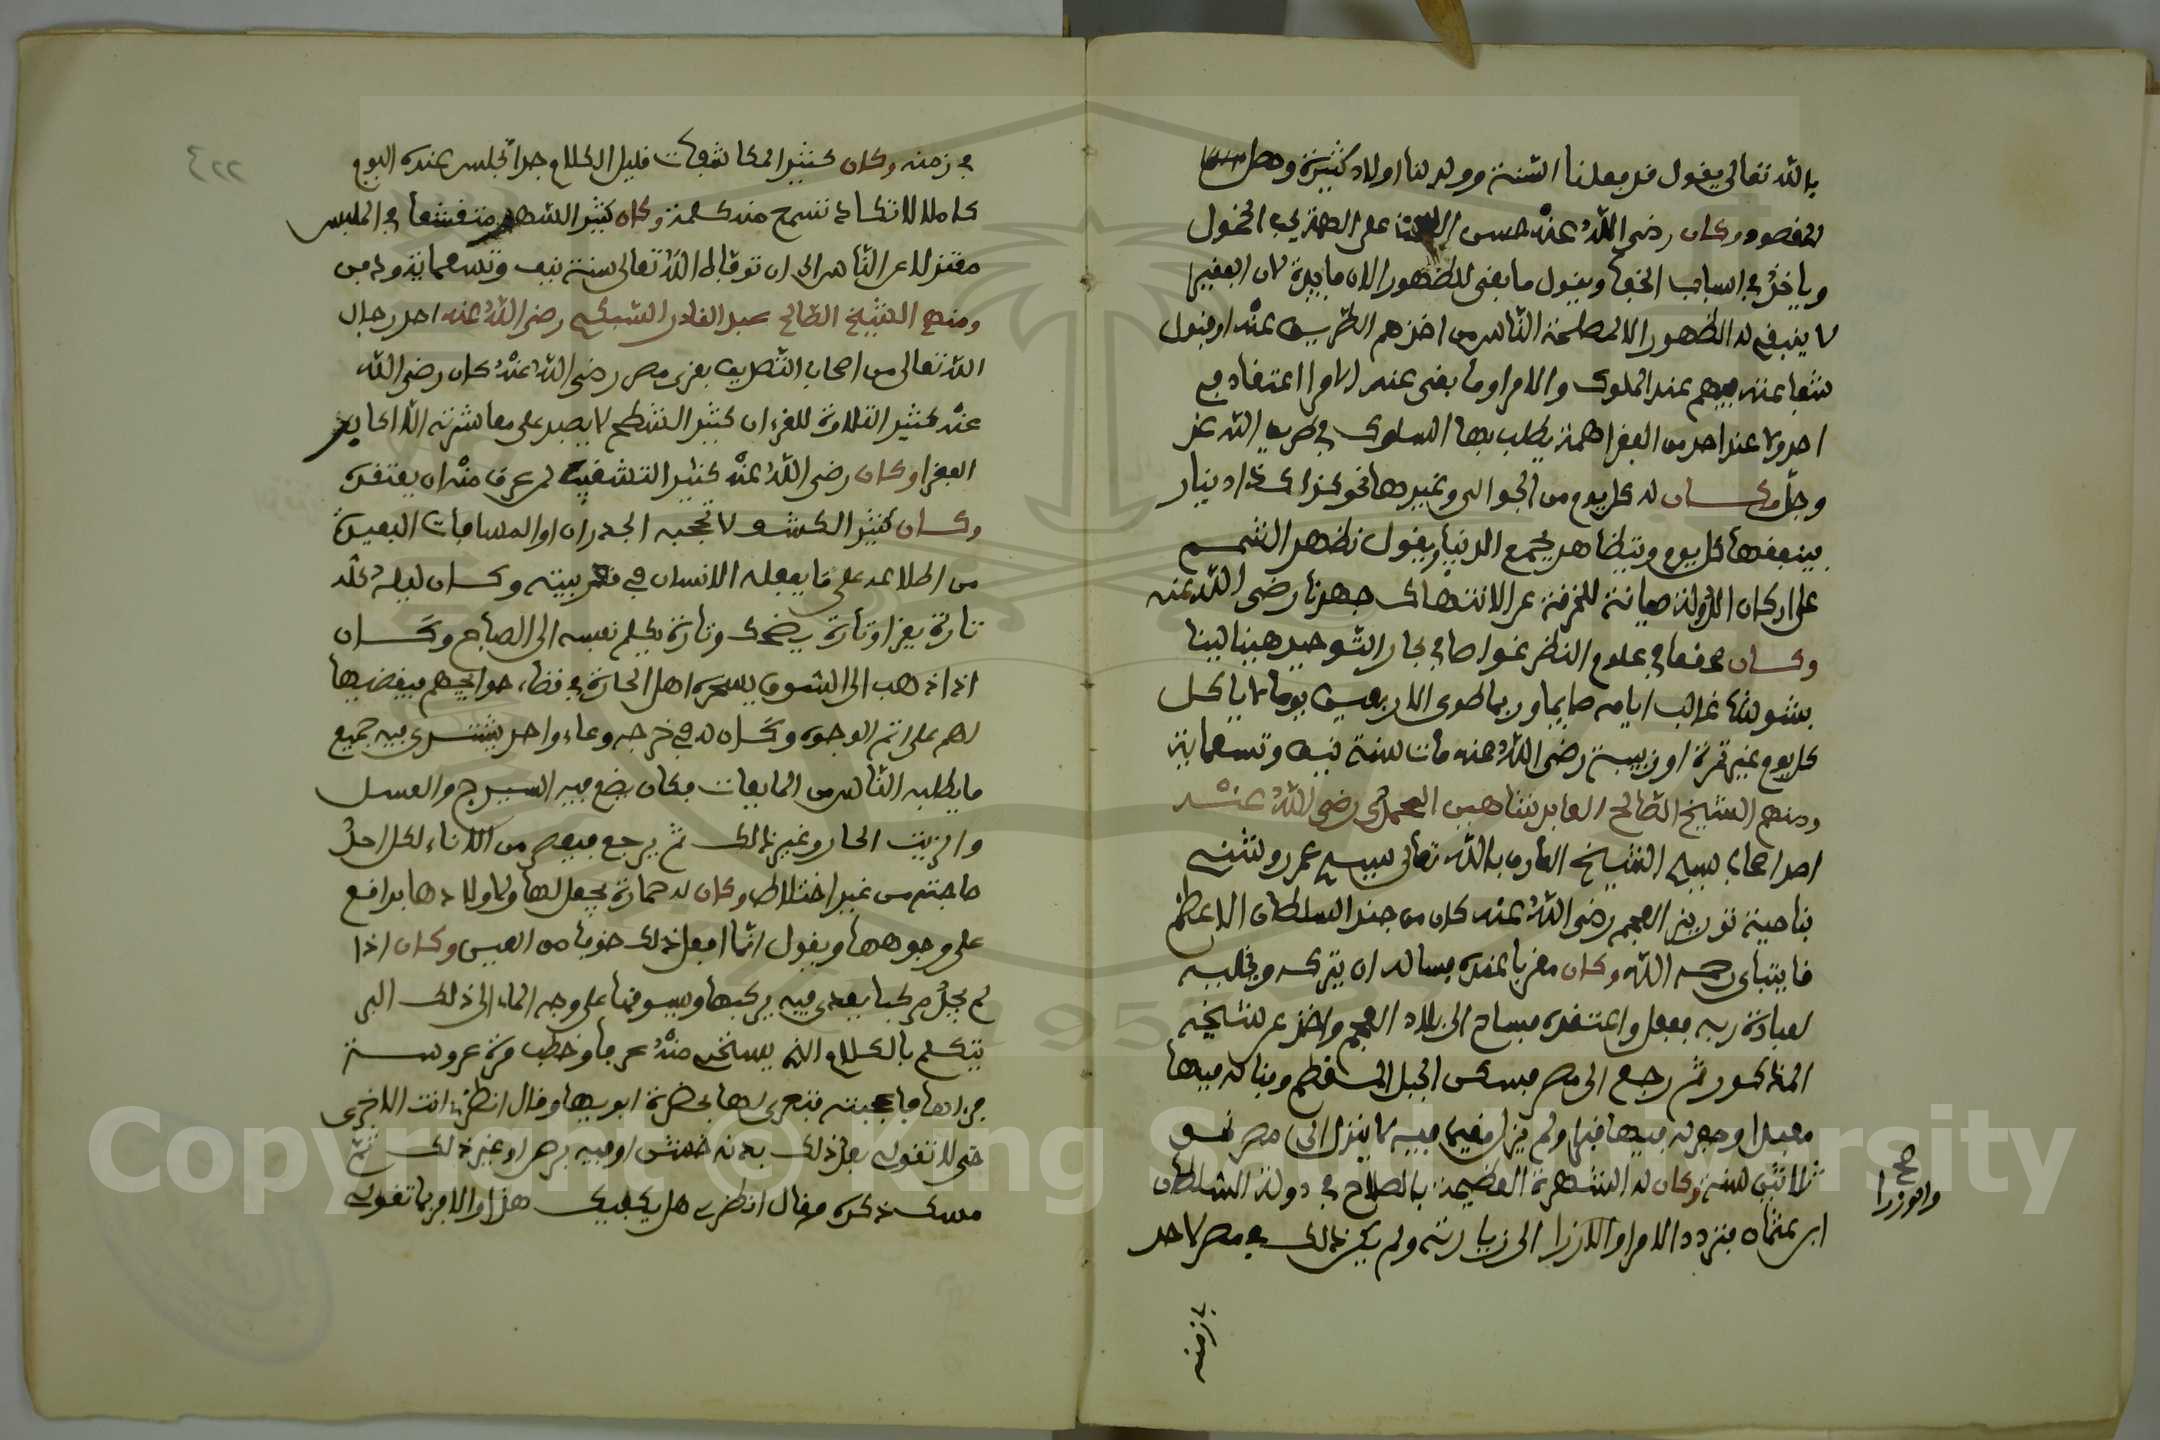 بالله تعالى يقول قد فعلنا السنة وولد لنا اولاد كثيرة وحصل
المقصود وكان رضى اللهُ عنهْ حسن على الطريق الخمول
وياخذُ في اسباب الخفا ويقول ما بقى للظهور الان فايدة لان الفقير
لا ينبغى له الظهور الا لمصلحة النّاس من اخذهم الطّريق عنهُ او قبول
شفاعته فيهم عند الملوك والامرا وما بقى عند الامرا اعتقاد في
احد ولا عند احد من الفقرا همة يطلب بها السلوك في طريق الله عز
وجلّ وكان له كل يوم من الجوالى وغيرها نحو كذا كذا دينار
ينفقها كل يوم ويتظاهر بجمع الدنيا ويقول نظهر الشمم
على اركان الدّولة صيانة للخرقة عن الانتهاك جهرتا رضى اللهُ عنه
وكان محققا في علوم النظر غواصا في بحار التوحيد هينا لينا
بشوشا غالب ايامه صايما وربما طوى الاربعين يوما لا ياكل
كل يوم غير تمرة او زبيبة رضى اللهُ عنه مات سنة نيف وتسعماية
ومنهم الشيخ الصّالح العابد شاهين المحمدى رضى اللهُ عنهْ
احد اصحاب سيدي الشيخ العارف بالله تعالى سيدي عمر روشنى
بناحية توريز العجم رضى اللهُ عنه كان من جند السلطان الاعظم
قايتباى رحمه الله وكان مقربا عنده فساله ان يتركه ويخليه
لعبادة ربه ففعل واعتقه فساح الى بلاد العجم واخذ عن شيخه
المذكور ثم رجع الى مصر فسكن الجبل المقطم وبنا له فيها
معبدا وحفر له فيها قبرا ولم يزل مقيما فيه لا ينزل الى مصر نحو
ثلاثين سنة وكان له الشهرة العظيمة بالصلاح في دولة السّلطان
ابن عثمان فتردد الامرا والازرا الى زيارته ولم يكن ذالك في مصر لاحد
صح
والوزرا
في زمنه
٢٢٤
في زمنه وكان كثير المكاشفات قليل الكلام جداً تجلس عنده اليوم
كاملا لا تكاد تسمع منه كلمة وكان كثير السهر متقشفا في الملبس
معتزلا عن النّاس الى ان توفاه اللهُ تعالى سنة نيف وتسعماية ودفن
ومنهم الشيخ الصّالح عبد القادر السبكى رضى اللهُ عنه احد رجال
الله تعالى من اصحاب التّصريف بقرى مصر رضى اللهُ عنهُ كان رضى الله
عنهُ كثير التلاوة للقرءان كثير الشطح لا يصبر على معاشرته الّا اكابر
الفقرا وكان رضى اللهُ عنهُ كثير التشفيت لم عرف منهُ ان يعتقده
وكان كثير الكشف لا تحجبه الجدران او المسافات البعيدة
من اطلاعه على ما يفعله الانسان في قعر بيته وكان ليلهُ كلّه
تارة يقرا وتارة يضحك وتارة يكلم نفسه الى الصباح وكان
اذا ذهب الى السّوق يسخره اهل الحارة في قضاء حوايجهم فيقضيها
لهم على اتم الوجوه وكان له في خرجه وعاء واحد يشترى فيه جميع
ما يطلبه النّاس من المايعات فكان يضع فيه السيرج والعسل
والزيت الحار وغير ذالك ثمّ يرجع فيعصر من الاناء لكل احدُ
حاجته من غير اختلاط وكان له حمارة يجعل لها ولاولادها براقع
على وجوهها ويقول انّما افعل ذلك خوفا من العين وكان اذا
لم يجدُ مركبا يعدى فيه يركبها ويسوقها على وجه الماء الى ذلك البر
يتكلم بالكلام الذى يستحى منهُ عرفا وخطب مرة عروسة
فراها فاعجبته فتعرى لها بحضرة ابويها وقال انظرى انت الاخرى
حتى لا تقولى بعد ذلك بدنه خشن او فيه برص او غير ذلك ثمّ
مسك ذكره وقال انظرى هل يكفيك هذا والا فربما تقولى